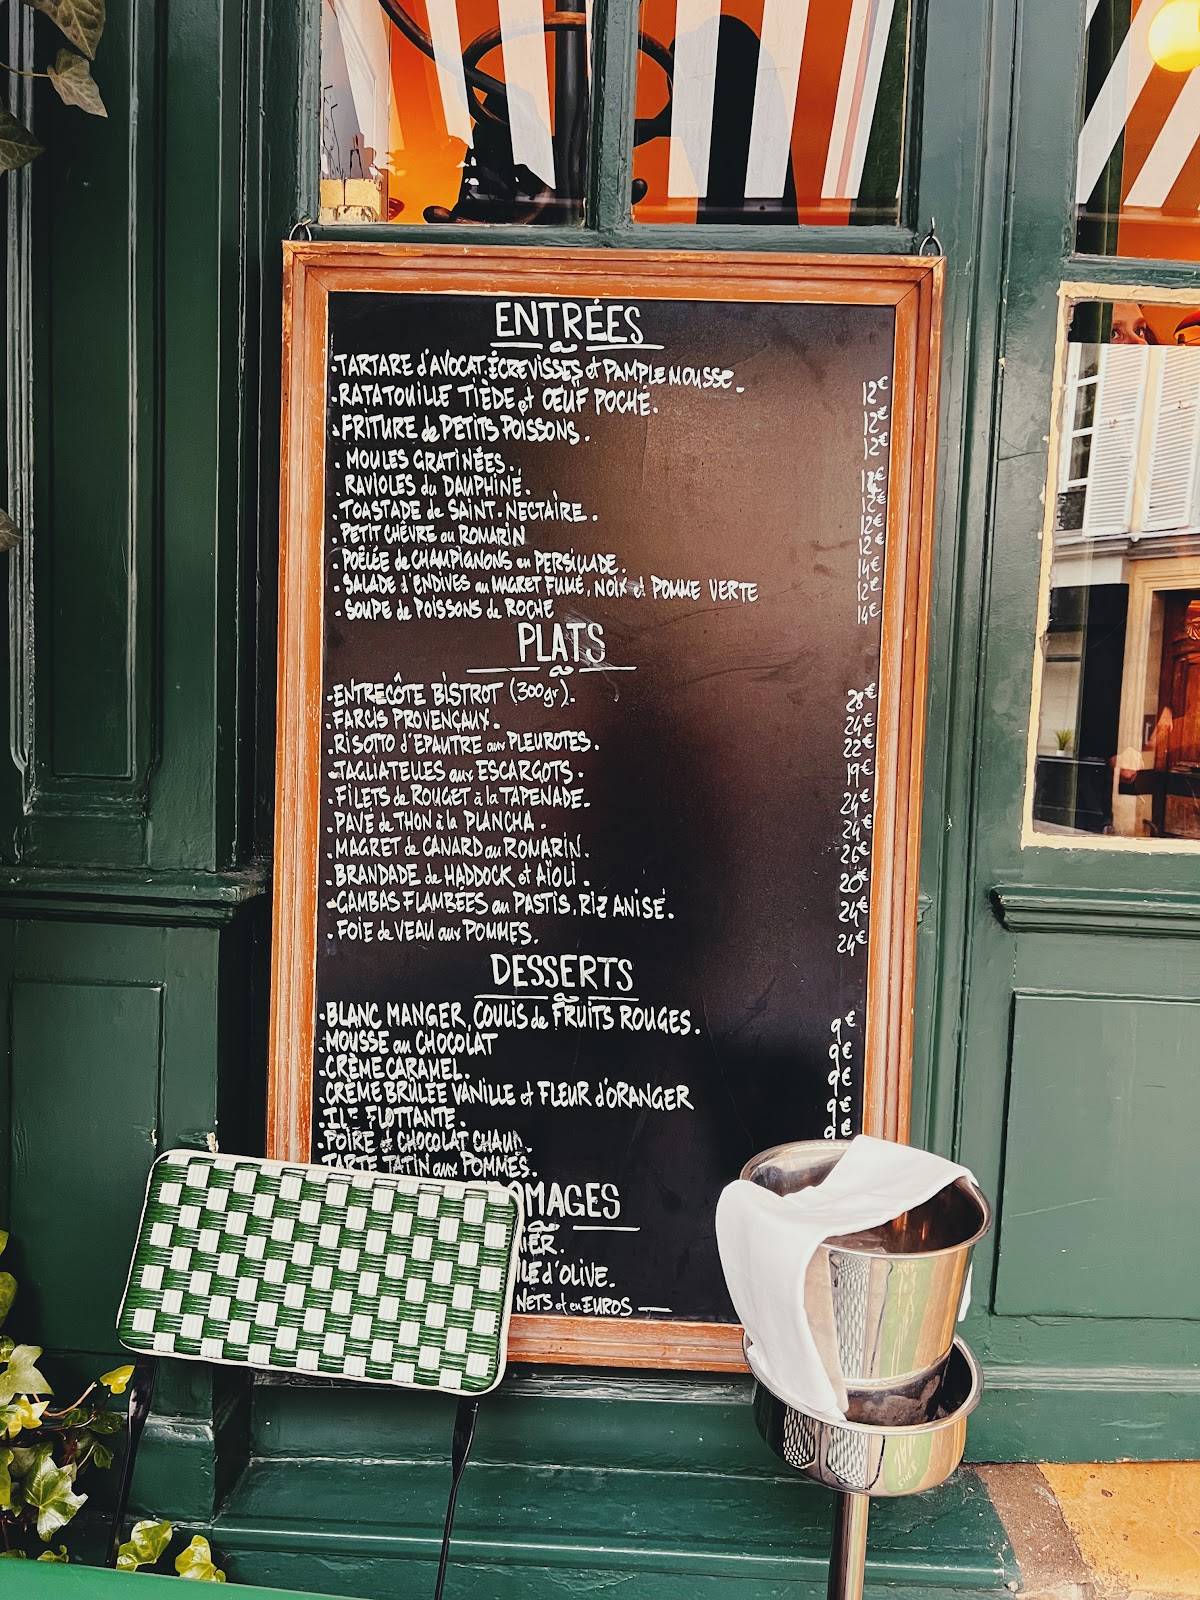 ENTRÉES
.TARTARE d'AVOCAT, ÉCREVISSES et PAMPLEMOUSSE. 12€
.RATATOUILLE TIÈDE et ŒUF POCHÉ. 12€
.FRITURE de PETITS POISSONS. 12€
.MOULES GRATINÉES.
.RAVIOLES du DAUPHINÉ. 12€
.TOASTADE de SAINT-NECTAIRE. 12€
.PETIT CHÈVRE au ROMARIN 12€
.POÊLÉE de CHAMPIGNONS en PERSILLADE. 14€
.SALADE d'ENDIVES au MAGRET FUMÉ, NOIX et POMME VERTE 12€
.SOUPE de POISSONS de ROCHE 14€
PLATS
.ENTRECÔTE BISTROT (300gr). 28€
.FARCIS PROVENÇAUX. 24€
.RISOTTO d'EPAUTRE aux PLEUROTES. 22€
.TAGLIATELLES aux ESCARGOTS. 19€
.FILETS de ROUGET à la TAPENADE. 24€
.PAVÉ de THON à la PLANCHA. 24€
.MAGRET de CANARD au ROMARIN. 26€
.BRANDADE de HADDOCK et AÏOLI. 20€
.GAMBAS FLAMBÉES au PASTIS, RIZ ANISÉ. 24€
.FOIE de VEAU aux POMMES. 24€
DESSERTS
.BLANC MANGER, COULIS de FRUITS ROUGES. 9€
.MOUSSE au CHOCOLAT 9€
.CRÈME CARAMEL. 9€
.CRÈME BRÛLÉE VANILLE et FLEUR d'ORANGER 9€
.ILE FLOTTANTE. 9€
.POIRE et CHOCOLAT CHAUD.
TARTE TATIN aux POMMES.
OMAGES
IER.
ILE d'OLIVE.
NETS et en EUROS —